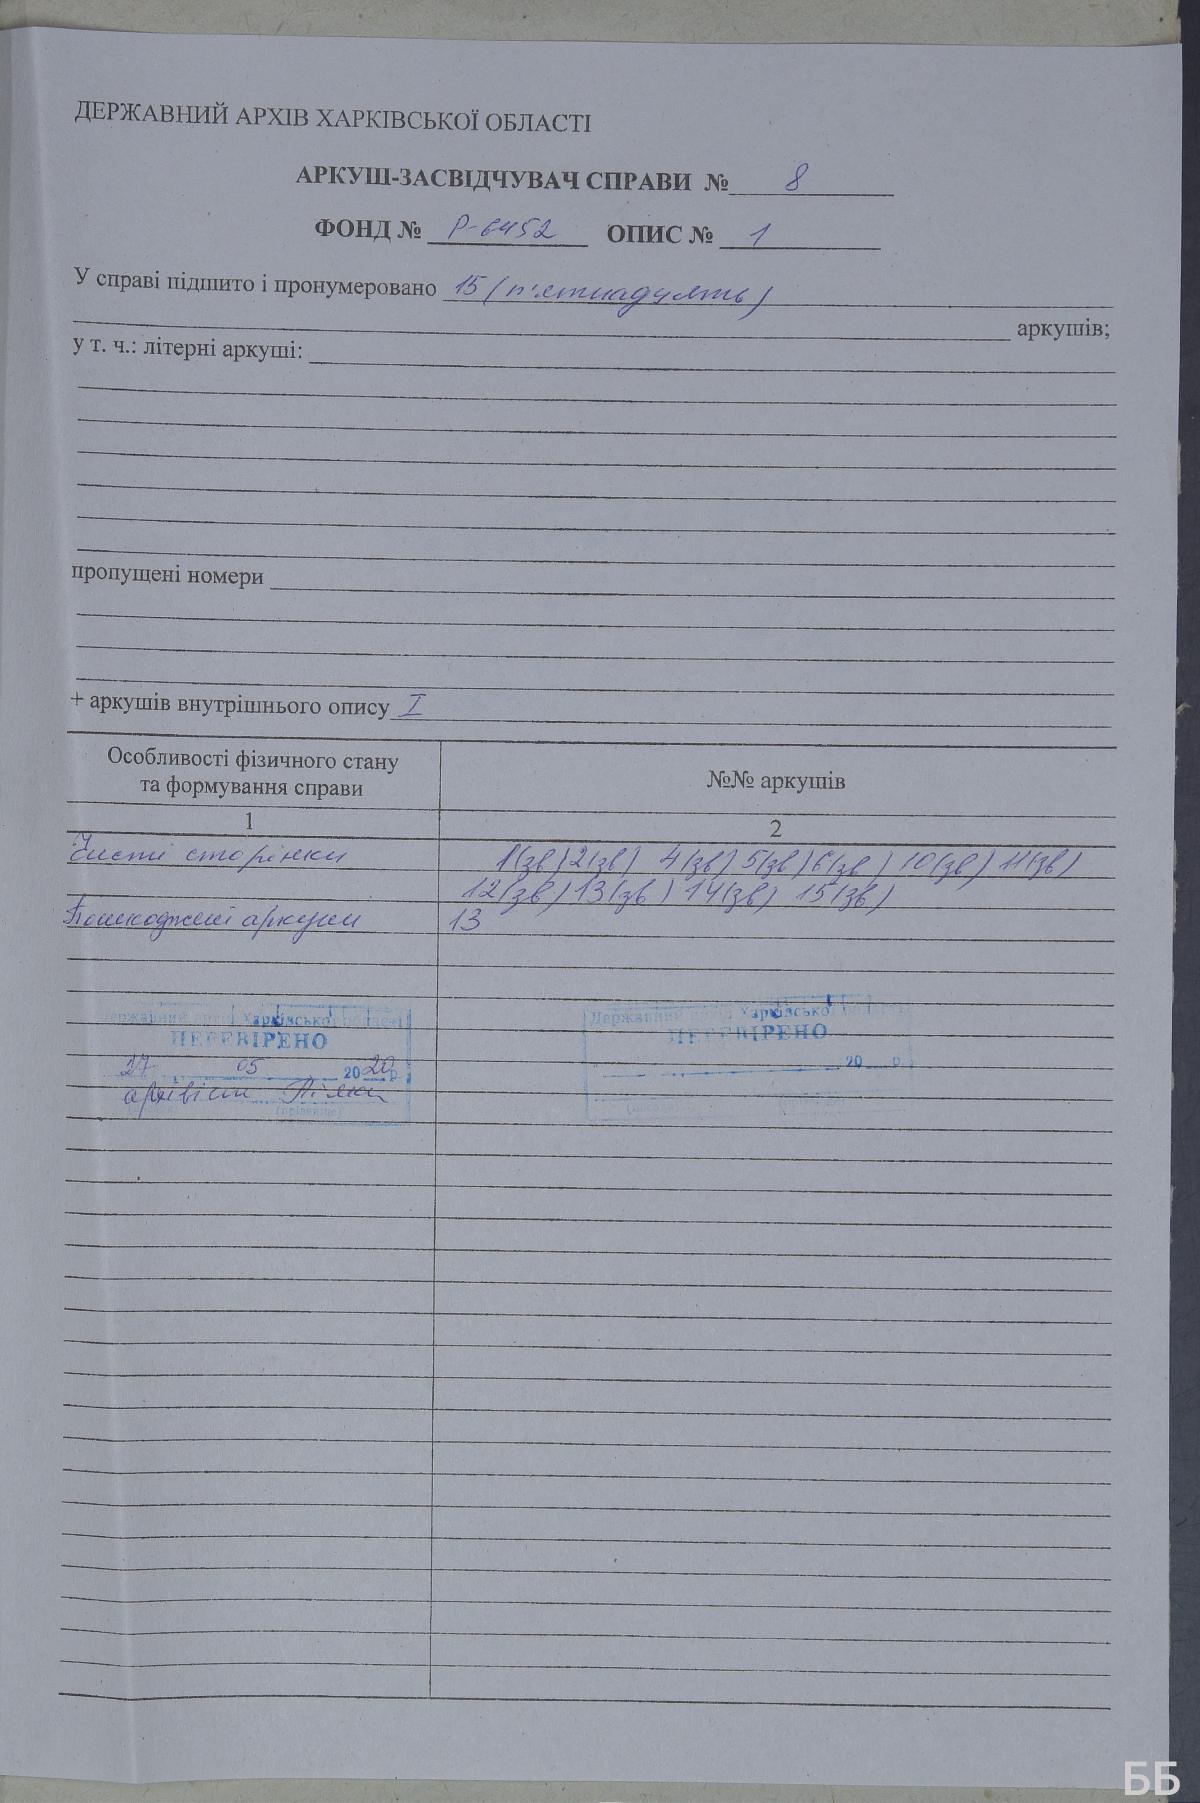 ДЕРЖАВНИЙ АРХІВ ХАРКІВСЬКОЇ ОБЛАСТІ
АРКУШ-ЗАСВІДЧУВАЧ СПРАВИ № 8
ФОНД № Р-6452 ОПИС № 1
У справі підшито і пронумеровано 15 (п'ятнадцять)
аркушів;
у т. ч.: літерні аркуші:
пропущені номери
+ аркушів внутрішнього опису I
Особливості фізичного стану
та формування справи
№№ аркушів
1
2
Чисті сторінки 1(зв) 2(зв) 4(зв) 5(зв) 6(зв) 10(зв) 11(зв)
12(зв) 13(зв) 14(зв) 15(зв)
Пошкоджені аркуши 13
Державний архів Харківської області
ПЕРЕВІРЕНО
27 05 2020 р.
архівіст
(прізвище)
Державний архів Харківської області
ПЕРЕВІРЕНО
20 р.
ББ